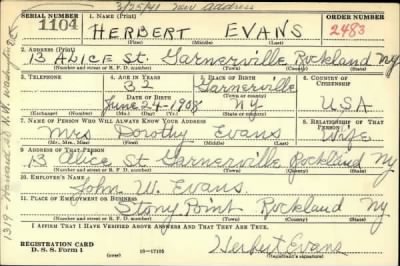 3/25/41 New address
SERIAL NUMBER
1104
1. NAME (Print)
HERBERT EVANS
(First) (Middle) (Last)
ORDER NUMBER
2483
2. ADDRESS (Print)
13 ALICE St. Garnerville Rockland NY
(Number and street or R. F. D. number) (Town) (County) (State)
3. TELEPHONE
4. AGE IN YEARS
32
5. PLACE OF BIRTH
Garnerville
(Town or county)
6. COUNTRY OF CITIZENSHIP
DATE OF BIRTH
June 24-1908
NY
USA
(Exchange) (No.)
(Mo.) (Day) (Yr.)
(State or country)
7. NAME OF PERSON WHO WILL ALWAYS KNOW YOUR ADDRESS
8. RELATIONSHIP OF THAT PERSON
Mrs Dorothy Evans
Wife
(Mr., Mrs., Miss) (First) (Middle) (Last)
9. ADDRESS OF THAT PERSON
13 Alice St Garnerville Rockland NY
(Number and street or R. F. D. number) (Town) (County) (State)
10. EMPLOYER'S NAME
John W. Evans
11. PLACE OF EMPLOYMENT OR BUSINESS
Stony Point Rockland NY
(Number and street or R. F. D. number) (Town) (County) (State)
I AFFIRM THAT I HAVE VERIFIED ABOVE ANSWERS AND THAT THEY ARE TRUE.
REGISTRATION CARD
D. S. S. Form 1
16-17105
Herbert Evans
(Registrant's signature)
1319 - Howard St N.W. Washington D.C.